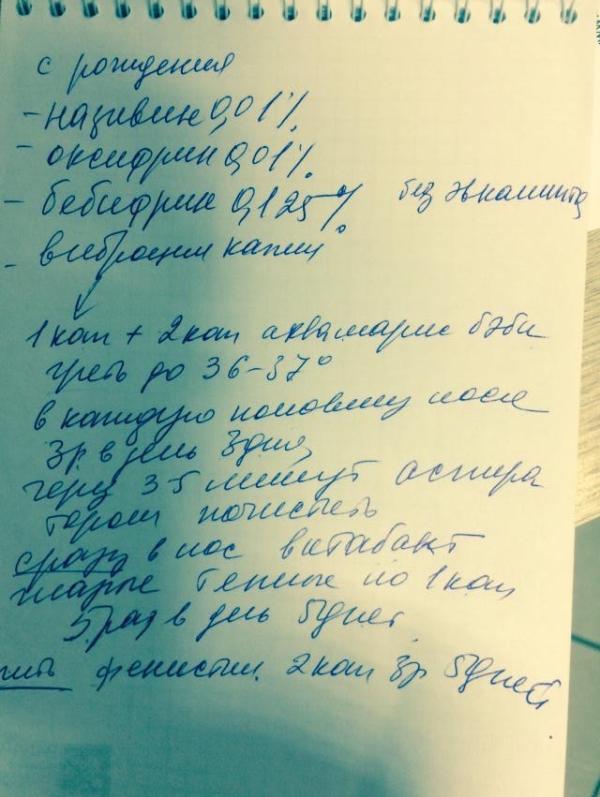 с рождения
- називин 0,01%
- оксифрин 0,01%
- бебифрин 0,125% без эвкалипта
- виброцил капли
1 кап + 2 кап аквамарис бэби
греть до 36-37°
в каждую половину носа
3р в день 3 дня,
через 3-5 минут аспира
тором почистить
сразу в нос витабакт
теплые по 1 кап
5 раз в день 5 дней
пить фенистил 2 кап 3р 5 дней